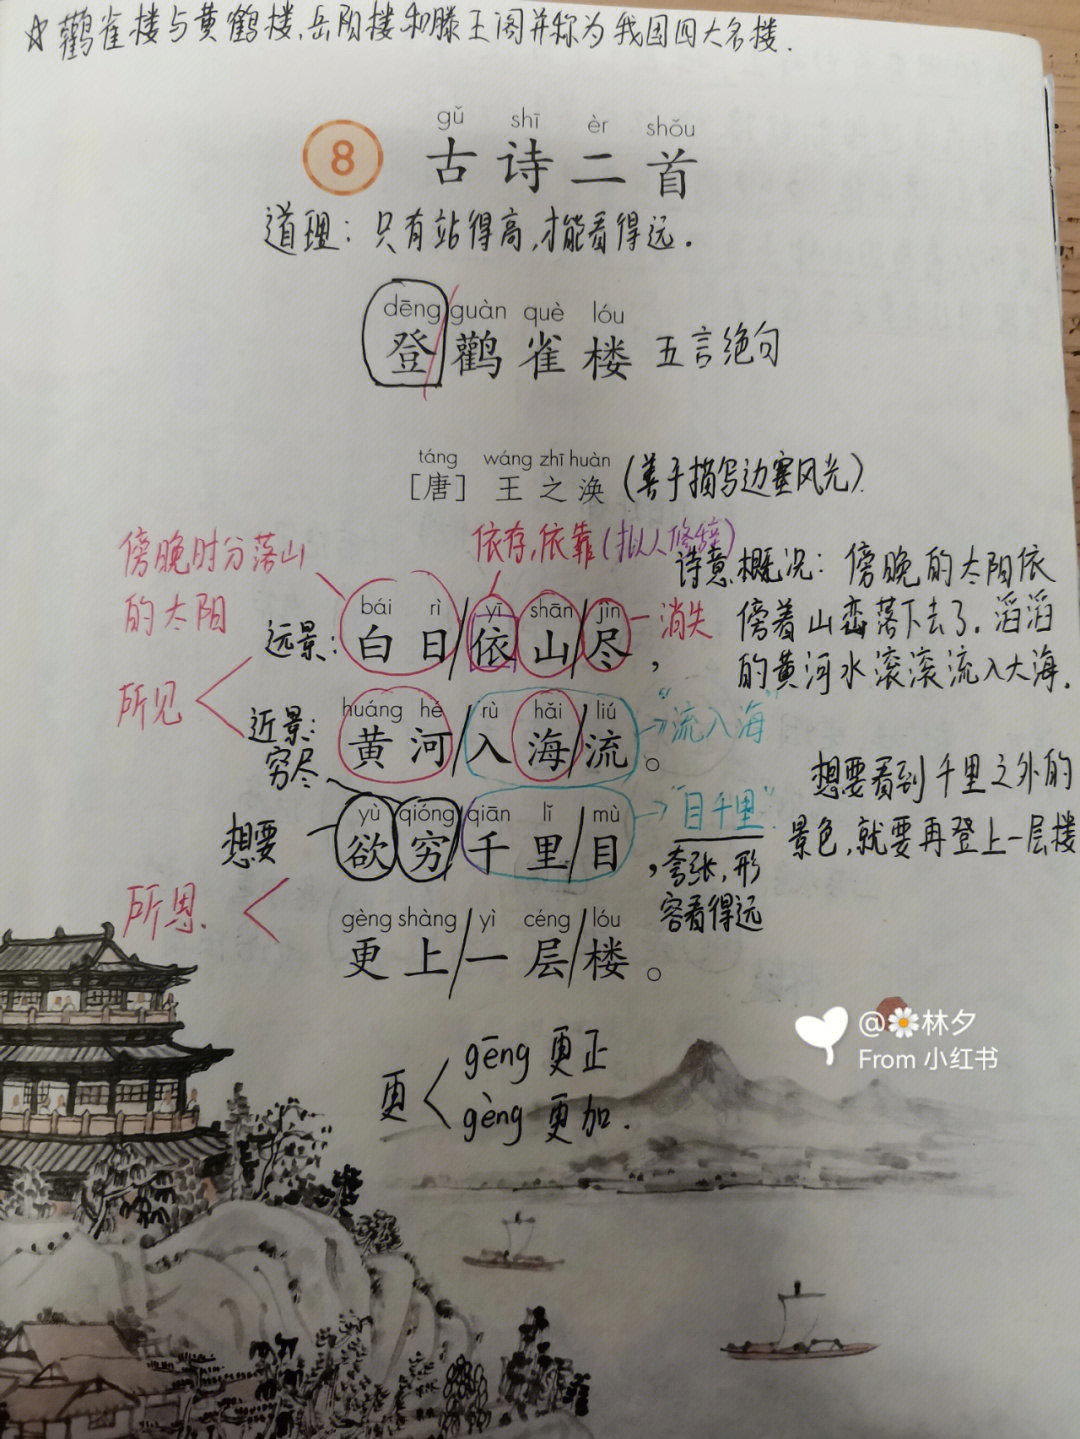 ☆鹳雀楼与黄鹤楼,岳阳楼和滕王阁并称为我国四大名楼.
gǔ shī èr shǒu
8 古诗二首
道理:只有站得高,才能看得远.
dēng guàn què lóu
登/鹳雀楼 五言绝句
táng wáng zhī huàn
[唐] 王之涣 (善于描写边塞风光)
傍晚时分落山
的太阳
依存,依靠(拟人修辞)
诗意概况:傍晚的太阳依
傍着山峦落下去了.滔滔
的黄河水滚滚流入大海.
bái rì yī shān jìn
远景: 白日/依山/尽, 消失
所见
huáng hé rù hǎi liú
近景: 黄河/入海/流。 "流入海"
穷尽
想要看到千里之外的
景色,就要再登上一层楼
yù qióng qiān lǐ mù
想要 欲穷/千里/目, "目千里"
夸张,形
容看得远
所思.
gèng shàng yì céng lóu
更上/一层/楼。
更 gēng 更正
gèng 更加.
@林夕
From 小红书